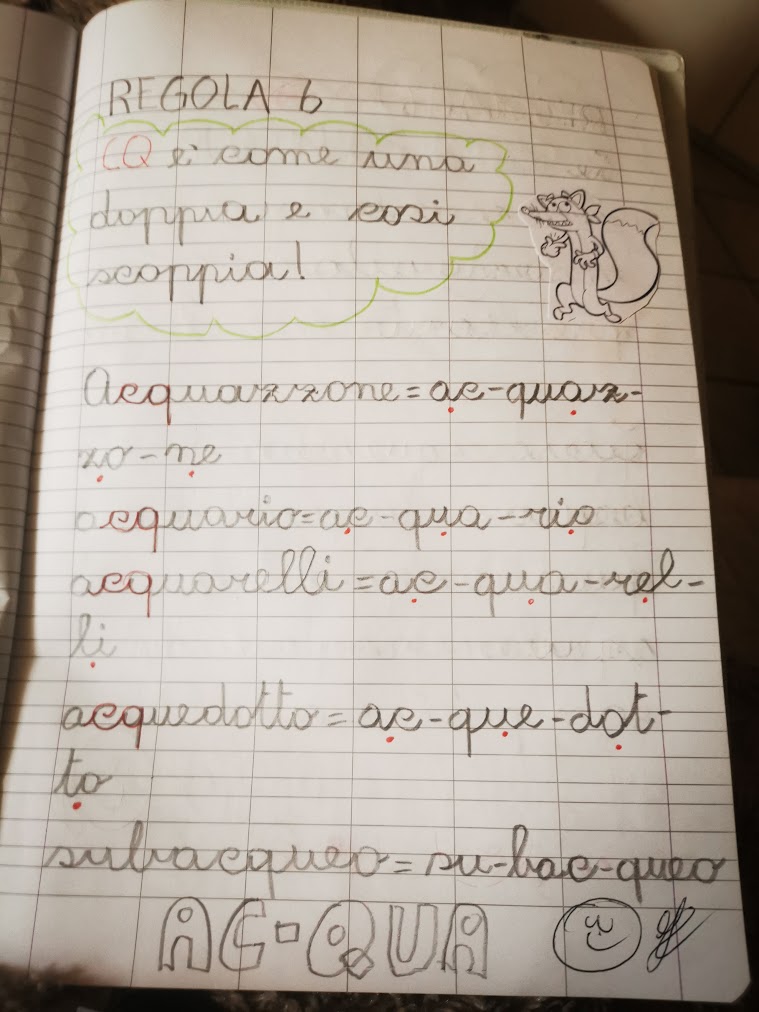 REGOLA 6
CQ è come una
doppia e così
scoppia!
Acquazzone=ac-quaz-
zo-ne
acquario=ac-qua-rio
acquarelli=ac-qua-rel-
li
acquedotto=ac-que-dot-
to
subacqueo=su-bac-queo
AC-QUA